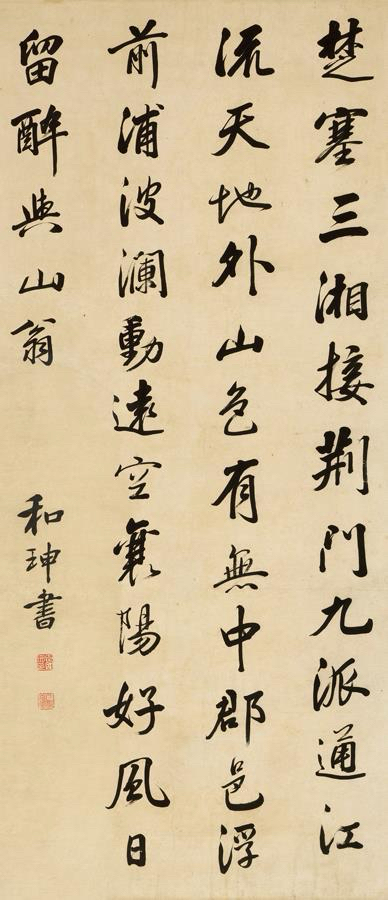 楚塞三湘接荆門九派通江
流天地外山色有無中郡邑浮
前浦波瀾動遠空襄陽好風日
留醉與山翁
和珅書